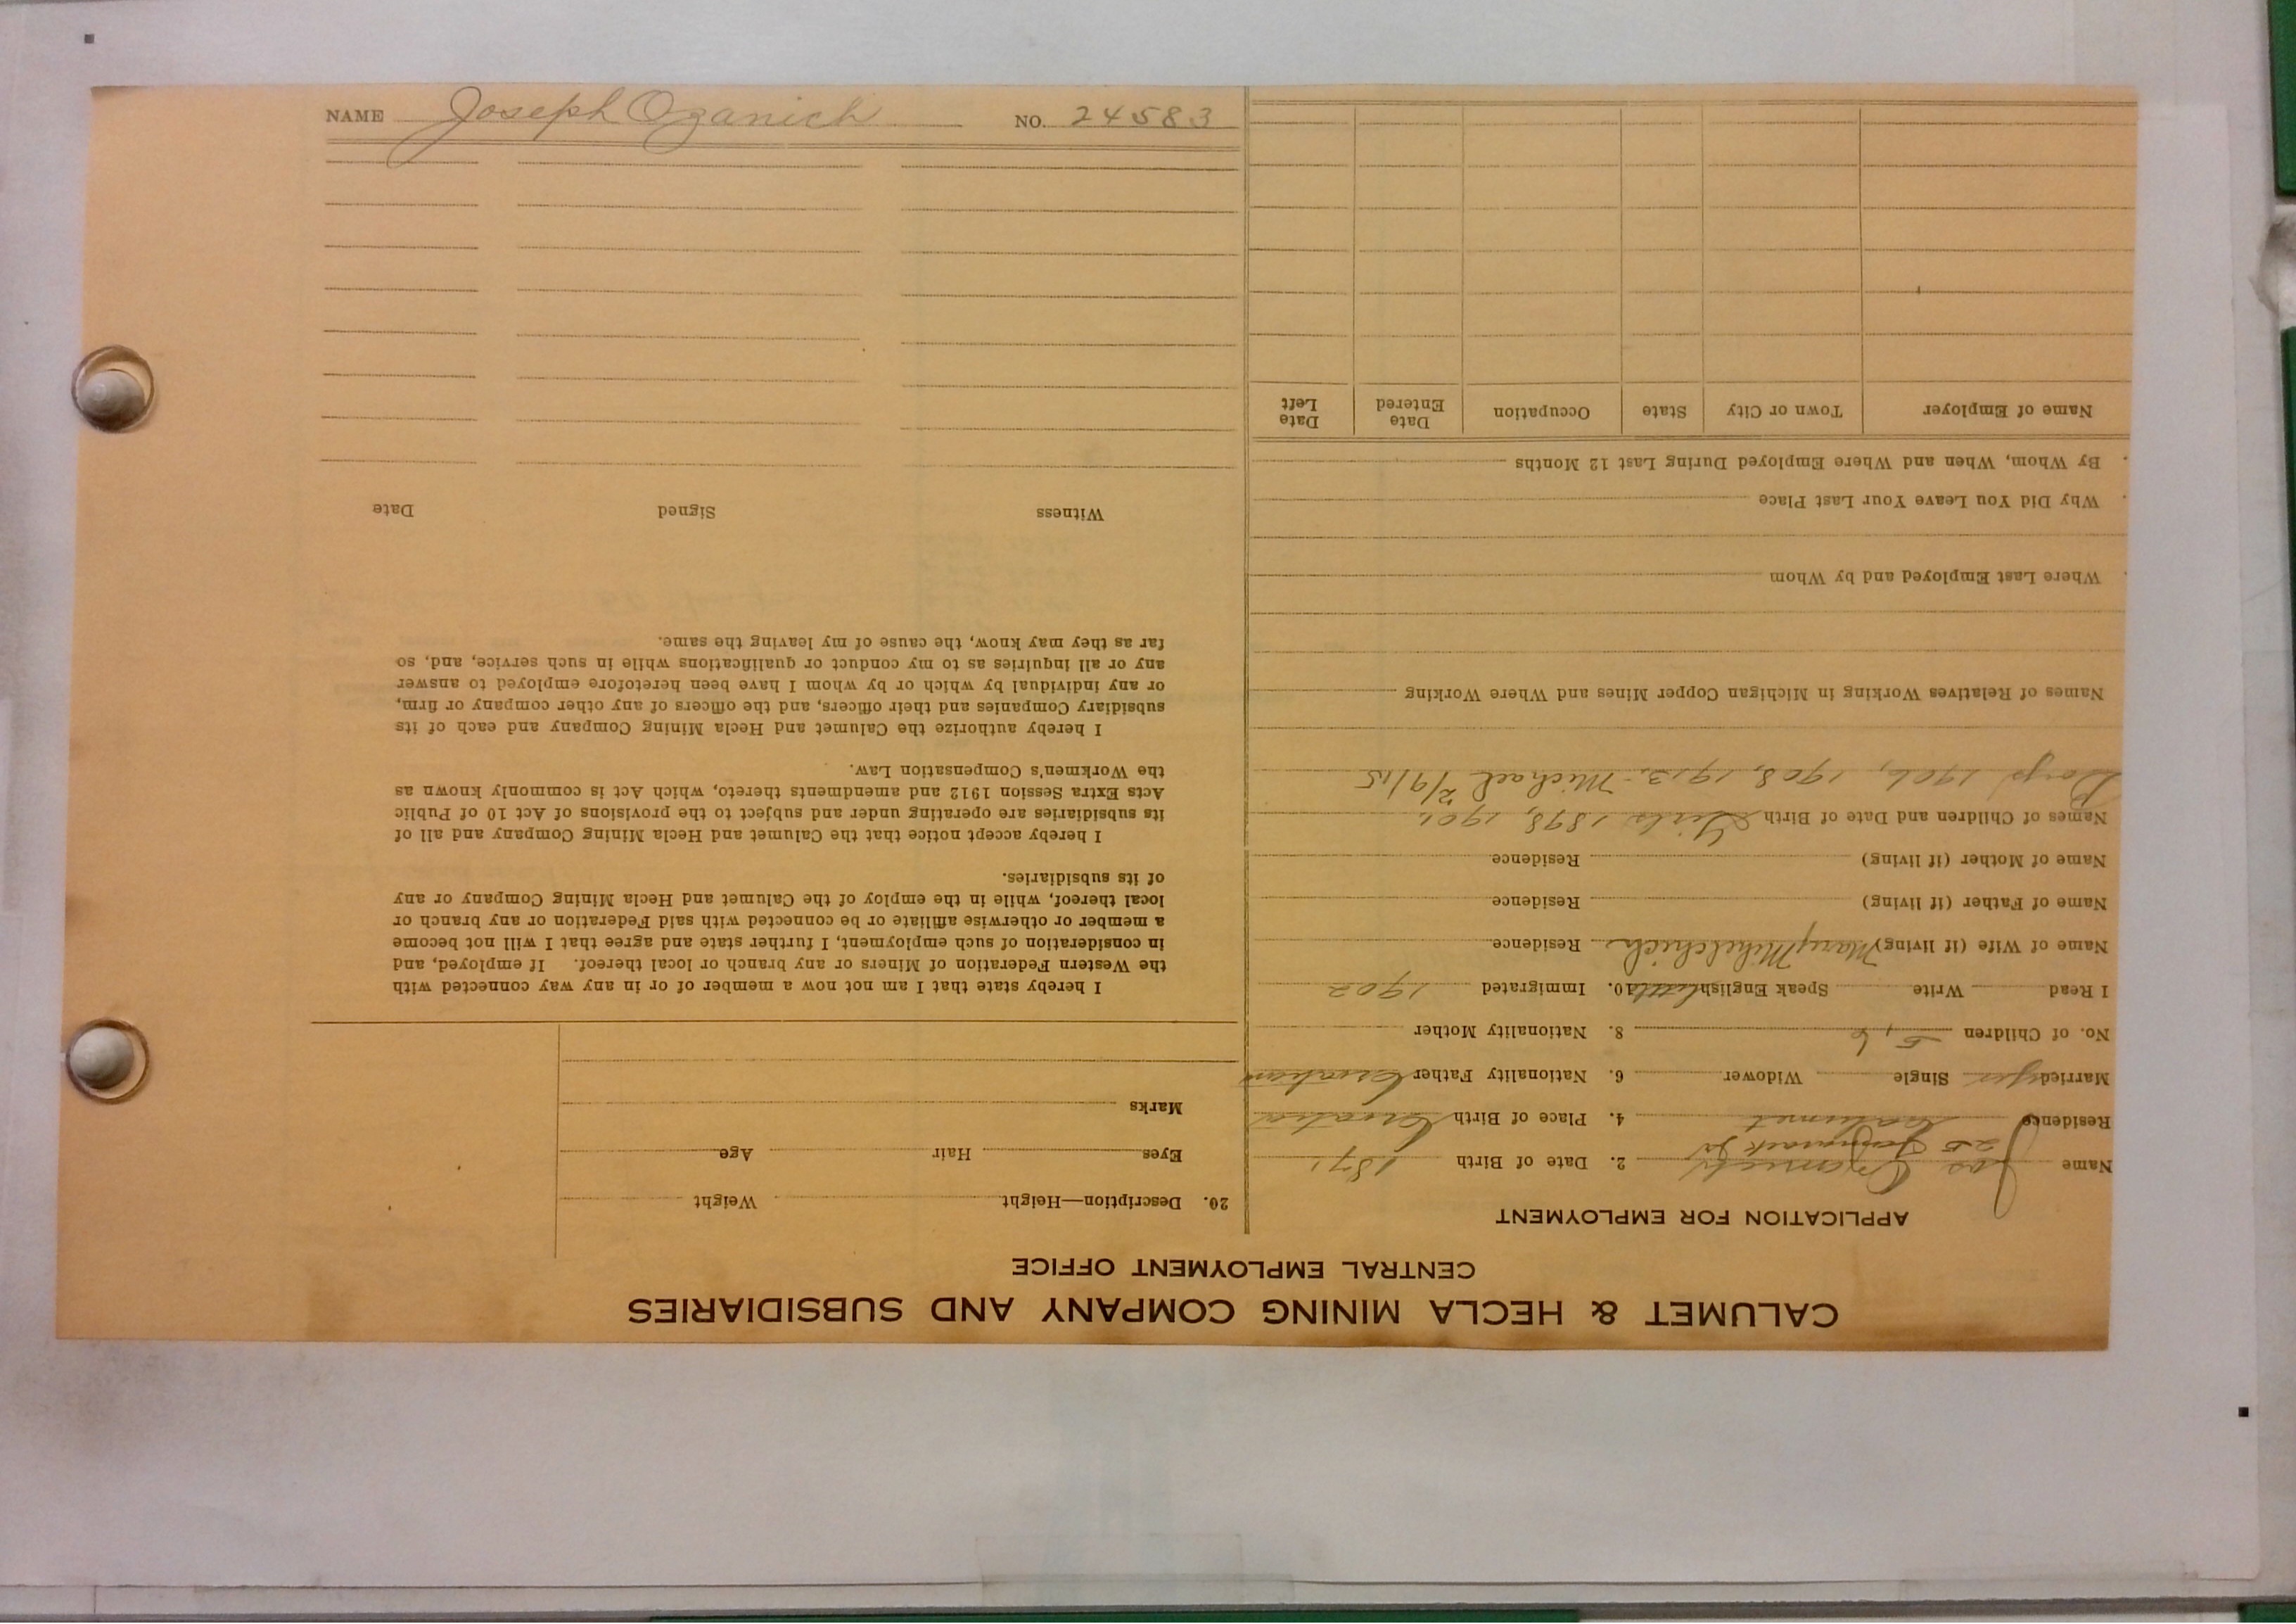 NAME Joseph Ozanich NO. 24583
CALUMET & HECLA MINING COMPANY AND SUBSIDIARIES
CENTRAL EMPLOYMENT OFFICE
APPLICATION FOR EMPLOYMENT
Name Jos Ozanich 2. Date of Birth 1871
25 Tamarack Jr
Residence Calumet 4. Place of Birth Croatia
Married yes Single Widower 6. Nationality Father Croatian
No. of Children 5, 6 8. Nationality Mother
I Read Write Speak English little 10. Immigrated 1902
Name of Wife (if living) Mary Mihelchich Residence
Name of Father (if living) Residence
Name of Mother (if living) Residence
Names of Children and Date of Birth Girls 1898, 1901
Boys 1906, 1908, 1913, Michael 2/9/15
Names of Relatives Working in Michigan Copper Mines and Where Working
Where Last Employed and by Whom
Why Did You Leave Your Last Place
By Whom, When and Where Employed During Last 12 Months
Name of Employer Town or City State Occupation Date Entered Date Left
20. Description—Height Weight
Eyes Hair Age
Marks
I hereby state that I am not now a member of or in any way connected with
the Western Federation of Miners or any branch or local thereof. If employed, and
in consideration of such employment, I further state and agree that I will not become
a member or otherwise affiliate or be connected with said Federation or any branch or
local thereof, while in the employ of the Calumet and Hecla Mining Company or any
of its subsidiaries.
I hereby accept notice that the Calumet and Hecla Mining Company and all of
its subsidiaries are operating under and subject to the provisions of Act 10 of Public
Acts Extra Session 1912 and amendments thereto, which Act is commonly known as
the Workmen's Compensation Law.
I hereby authorize the Calumet and Hecla Mining Company and each of its
subsidiary Companies and their officers, and the officers of any other company or firm,
or any individual by which or by whom I have been heretofore employed to answer
any or all inquiries as to my conduct or qualifications while in such service, and, so
far as they may know, the cause of my leaving the same.
Witness Signed Date